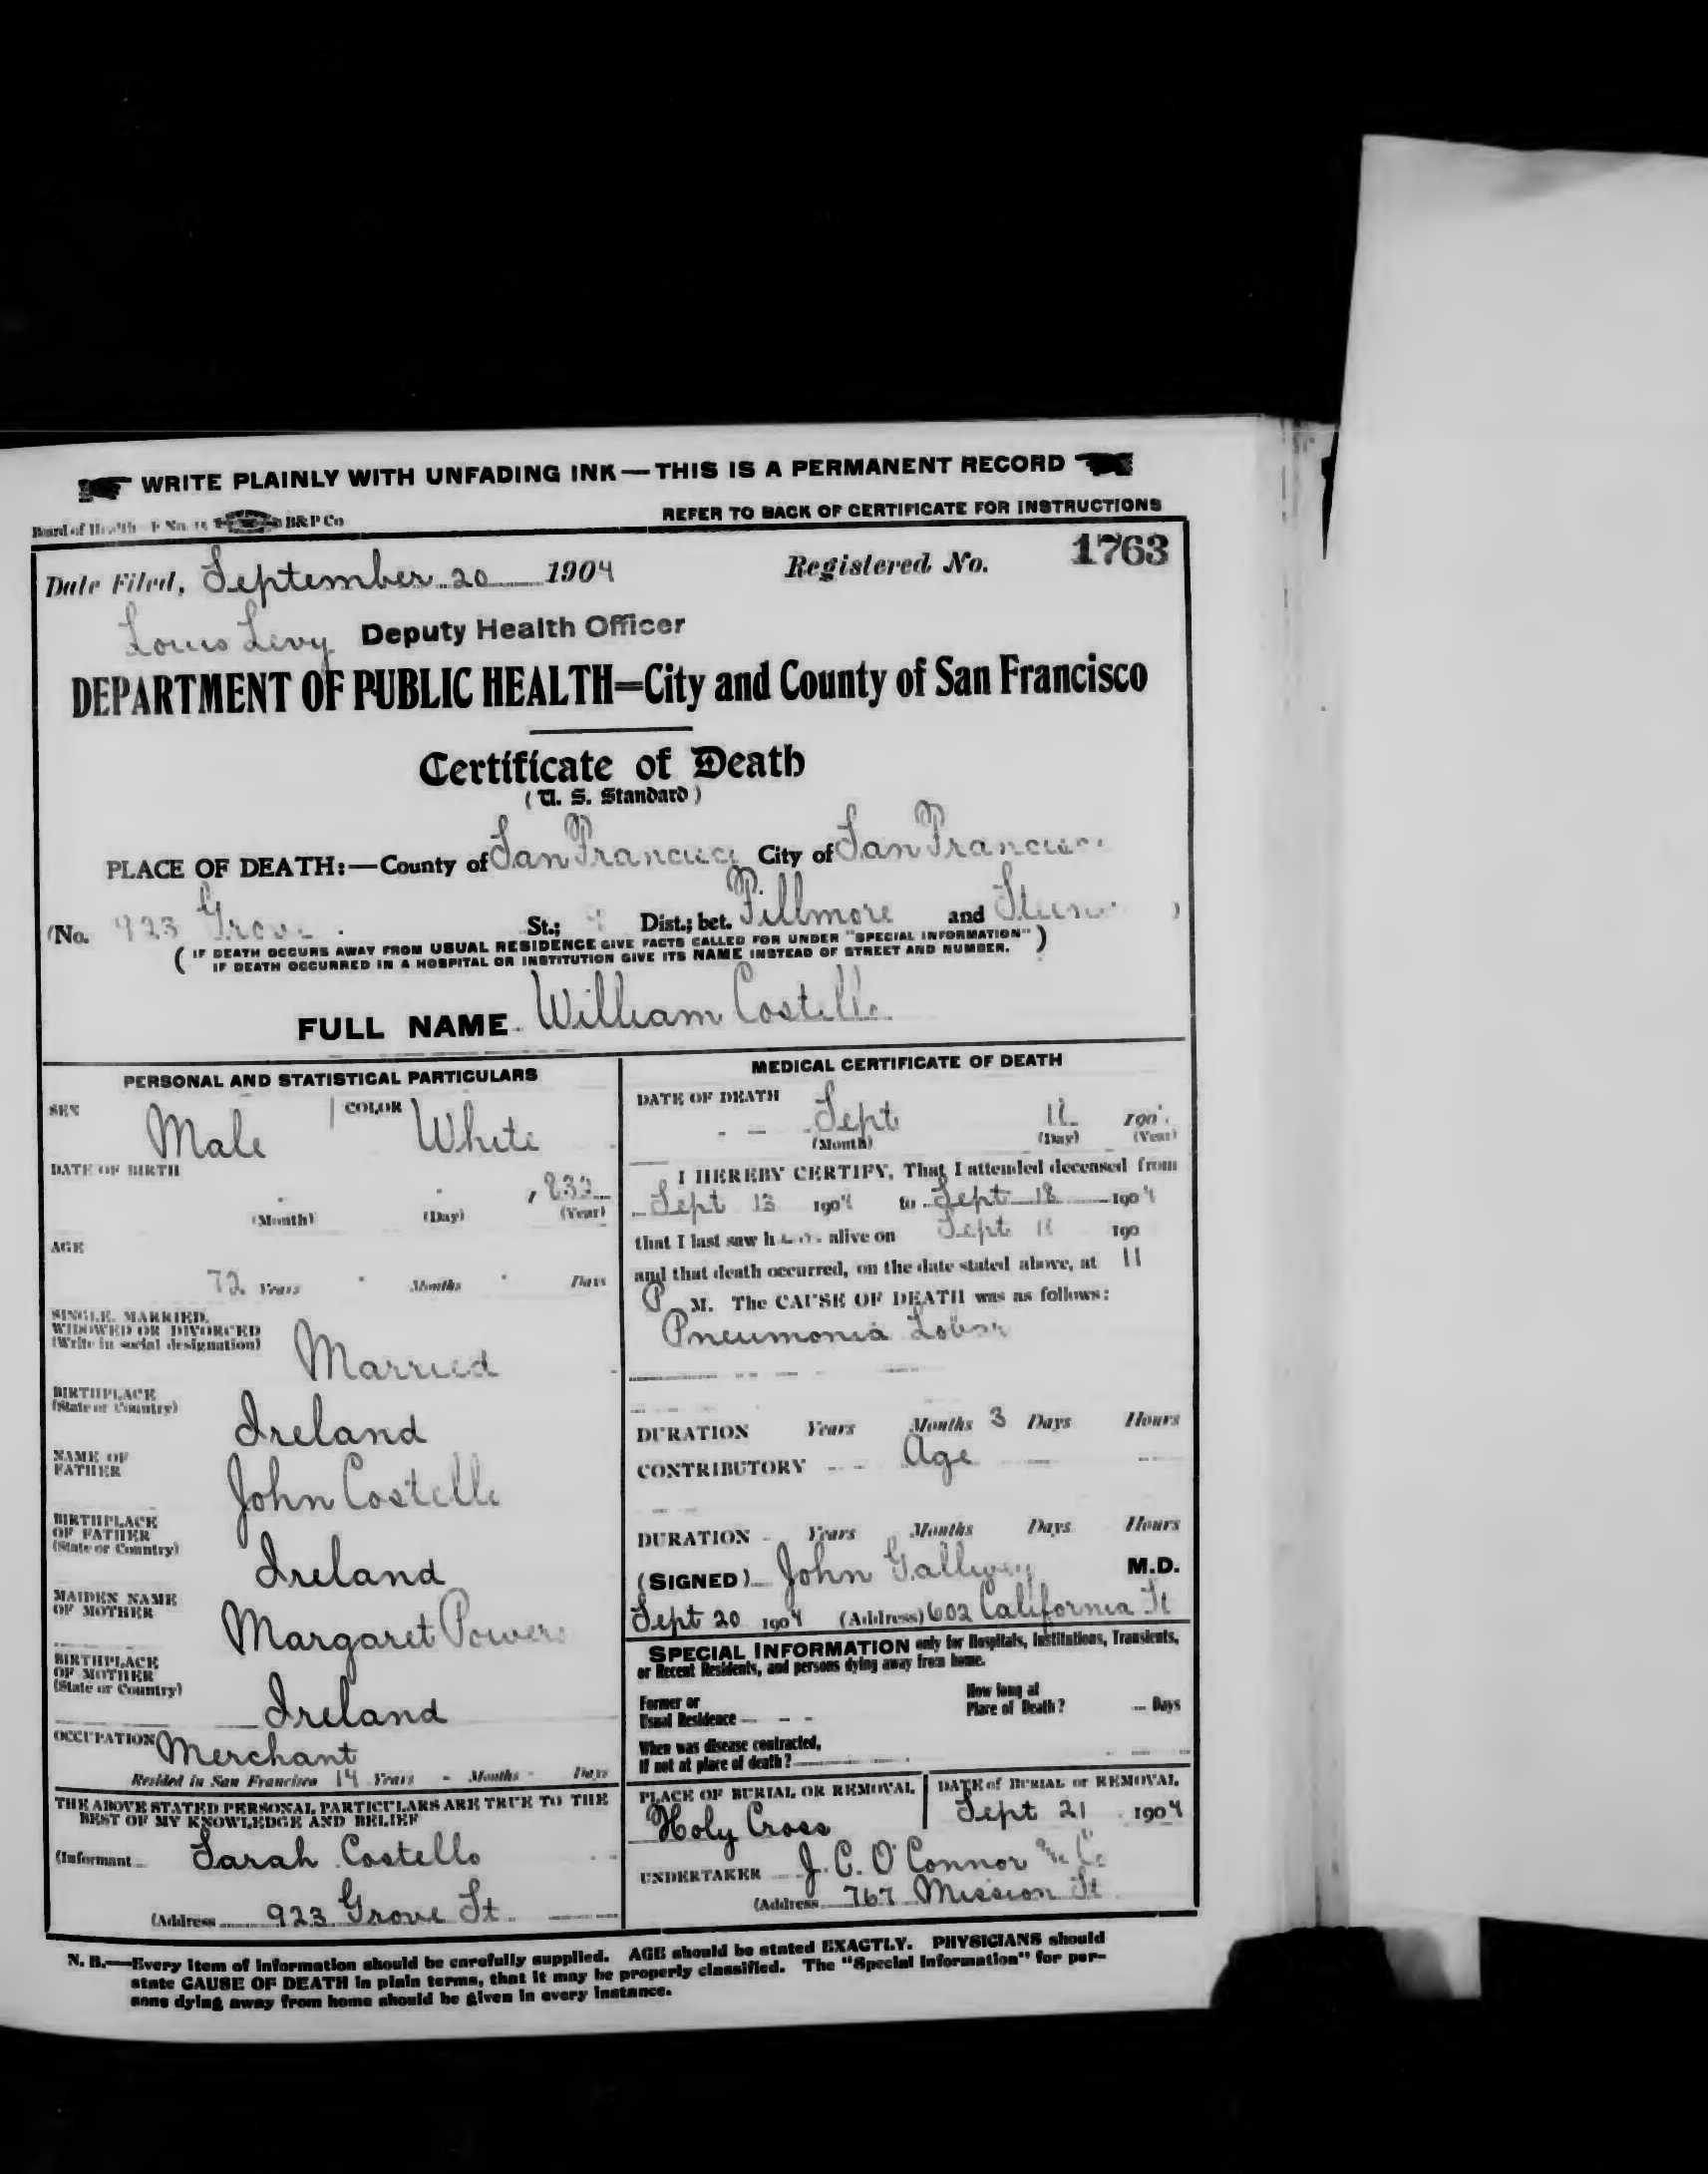 WRITE PLAINLY WITH UNFADING INK — THIS IS A PERMANENT RECORD
Board of Health B&P Co
REFER TO BACK OF CERTIFICATE FOR INSTRUCTIONS
Date Filed, September 20 1904 Registered No. 1763
Louis Levy Deputy Health Officer
DEPARTMENT OF PUBLIC HEALTH=City and County of San Francisco
Certificate of Death
(U. S. Standard)
PLACE OF DEATH:—County of San Francisco City of San Francisco
(No. 923 Grove St.; Dist.; bet. Fillmore and )
( IF DEATH OCCURS AWAY FROM USUAL RESIDENCE GIVE FACTS CALLED FOR UNDER "SPECIAL INFORMATION" )
IF DEATH OCCURRED IN A HOSPITAL OR INSTITUTION GIVE ITS NAME INSTEAD OF STREET AND NUMBER.
FULL NAME William Costello
PERSONAL AND STATISTICAL PARTICULARS
SEX Male COLOR White
DATE OF BIRTH
1832
(Month) (Day) (Year)
AGE
72 Years Months Days
SINGLE, MARRIED,
WIDOWED OR DIVORCED
(Write in social designation) Married
BIRTHPLACE
(State or Country) Ireland
NAME OF
FATHER John Costello
BIRTHPLACE
OF FATHER
(State or Country) Ireland
MAIDEN NAME
OF MOTHER Margaret Powers
BIRTHPLACE
OF MOTHER
(State or Country) Ireland
OCCUPATION Merchant
Resided in San Francisco 14 Years - Months - Days
THE ABOVE STATED PERSONAL PARTICULARS ARE TRUE TO THE
BEST OF MY KNOWLEDGE AND BELIEF
(Informant Sarah Costello
(Address 923 Grove St.
MEDICAL CERTIFICATE OF DEATH
DATE OF DEATH
Sept 190
(Month) (Day) (Year)
I HEREBY CERTIFY, That I attended deceased from
Sept 13 1904 to Sept 18 1904
that I last saw h alive on Sept 190
and that death occurred, on the date stated above, at 11
P M. The CAUSE OF DEATH was as follows:
Pneumonia Lobar
DURATION Years Months 3 Days Hours
CONTRIBUTORY Age
DURATION Years Months Days Hours
(SIGNED) John Gallwey M.D.
Sept 20 1904 (Address) 602 California St
SPECIAL INFORMATION only for Hospitals, Institutions, Transients,
or Recent Residents, and persons dying away from home.
Former or
Usual Residence
How long at
Place of Death? Days
When was disease contracted,
If not at place of death?
PLACE OF BURIAL OR REMOVAL
Holy Cross
DATE of BURIAL or REMOVAL
Sept 21 1904
UNDERTAKER J. C. O'Connor & Co
(Address 767 Mission St
N. B.—Every item of information should be carefully supplied. AGE should be stated EXACTLY. PHYSICIANS should
state CAUSE OF DEATH in plain terms, that it may be properly classified. The "Special Information" for per-
sons dying away from home should be given in every instance.